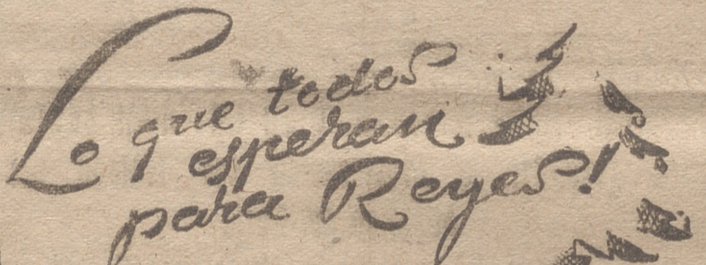 Lo que todos
esperan
para Reyes!